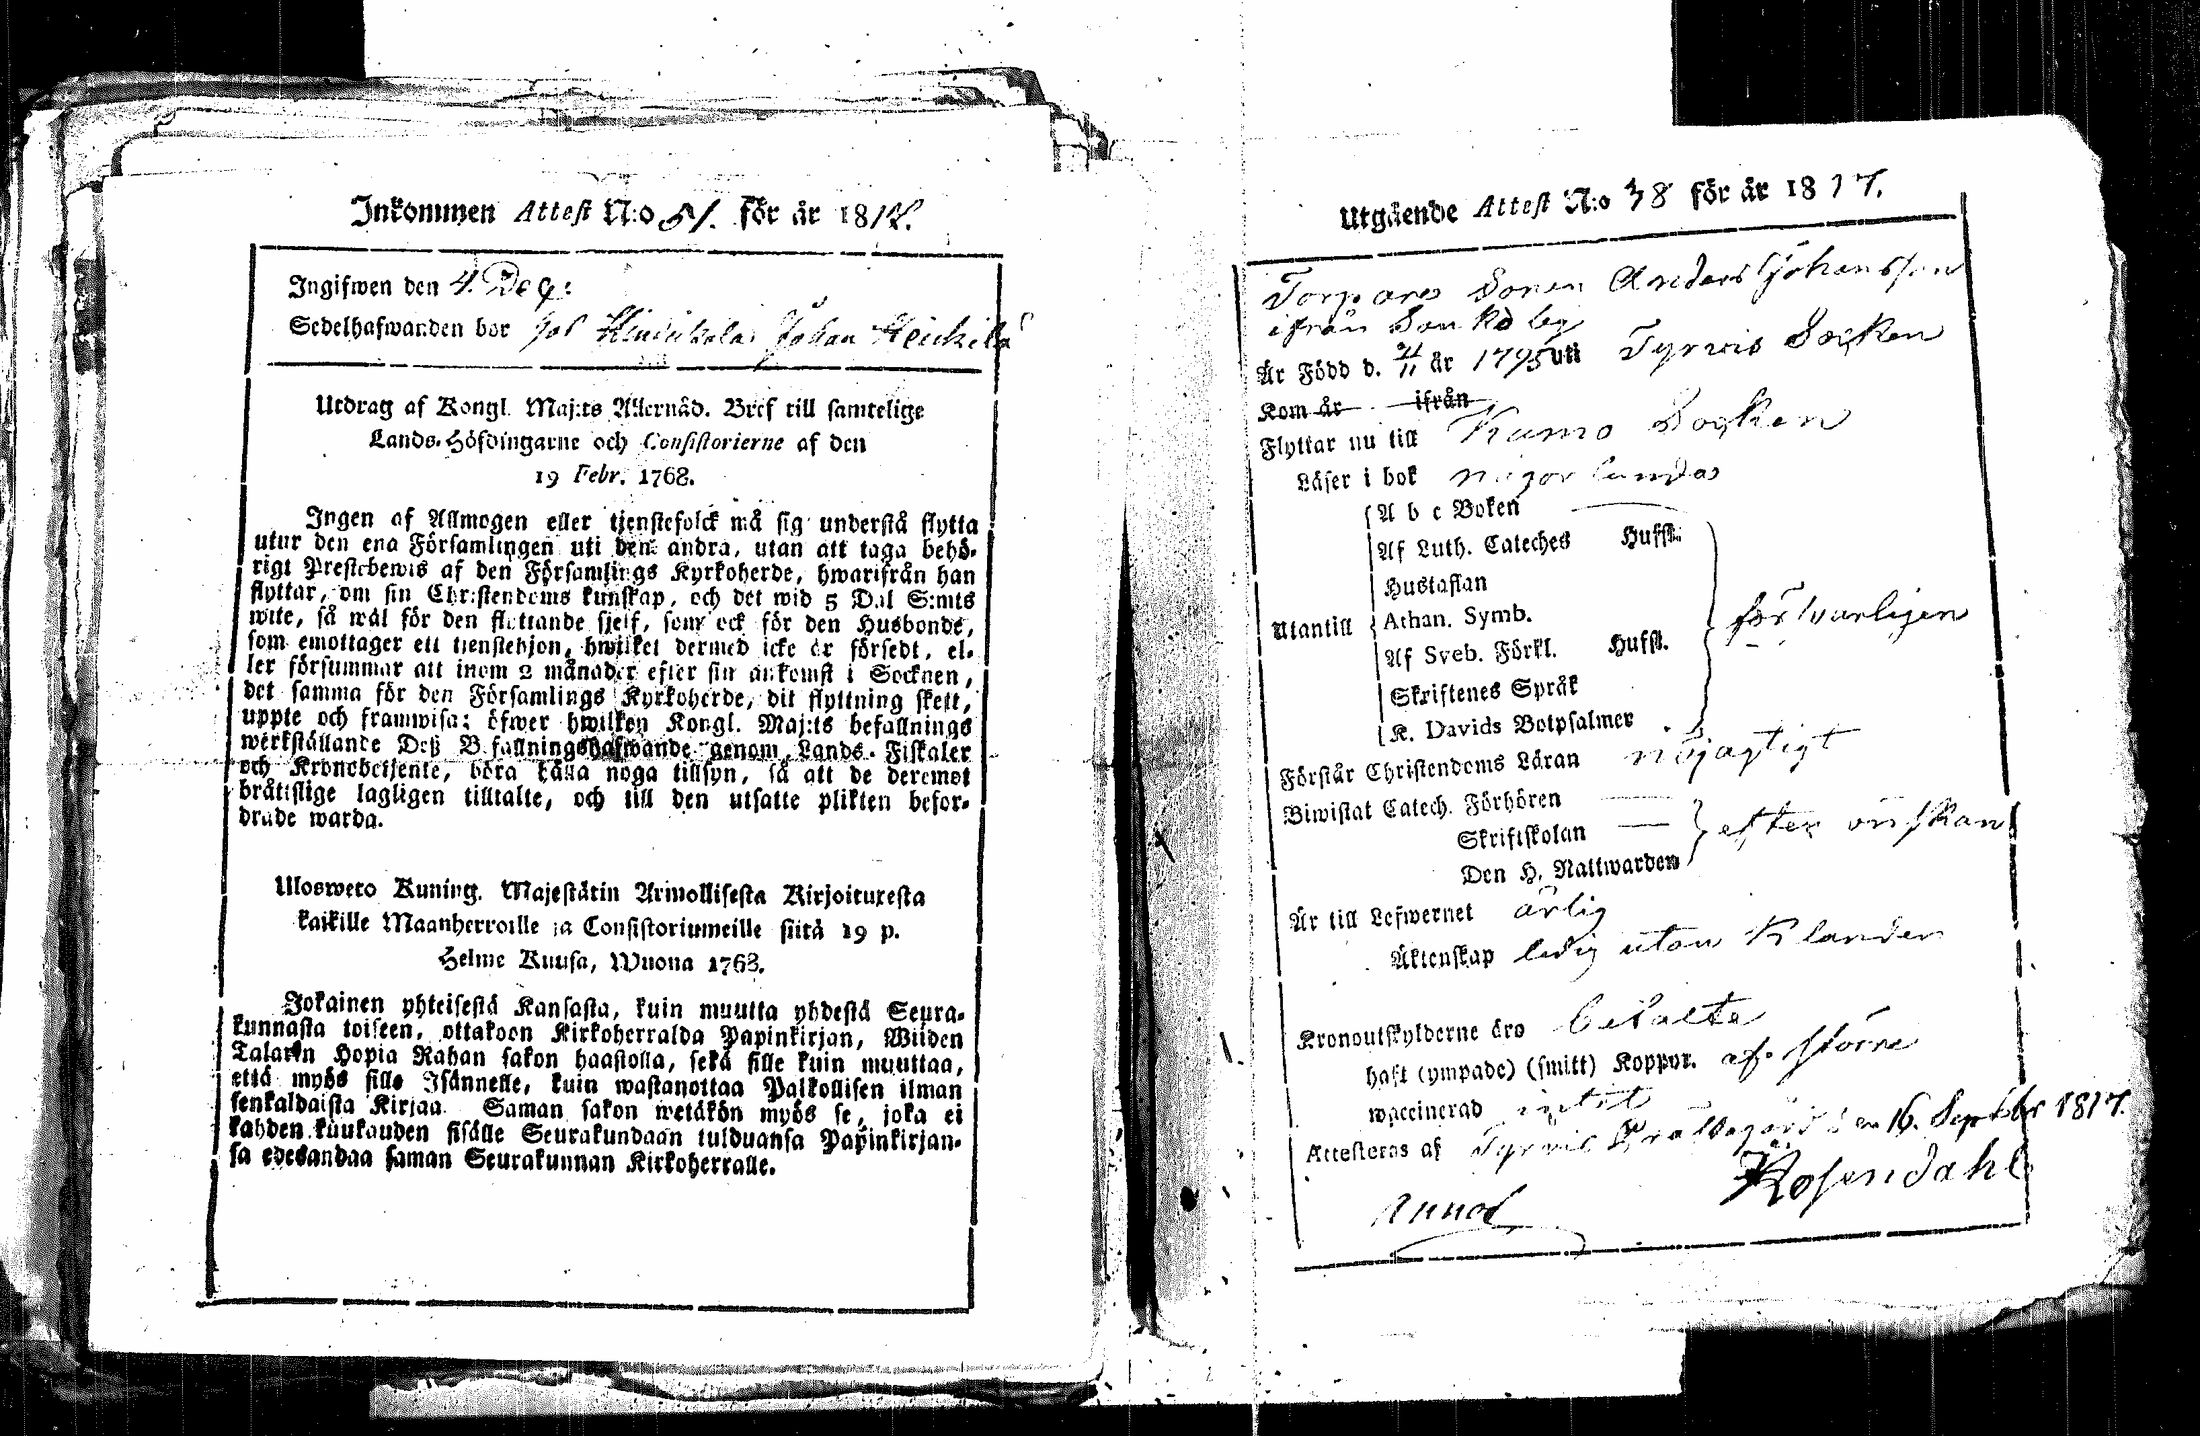 Inkommen Attest N:o 51. för år 1817.
Ingifwen den 4. Dec:
Sedelhafwanden bor hos Johan Heickilä
Utdrag af Kongl. Maj:ts Allernåd. Bref till samtelige
Lands-Höfdingarne och Consistorierne af den
19 Febr. 1768.
Ingen af Allmogen eller tjenstefolck må sig understå flytta
utur den ena Församlingen uti den andra, utan att taga behö-
rigt Prestebewis af den Församlings Kyrkoherde, hwarifrån han
flyttar, om sin Christendoms kunskap, och det wid 5 Dal S:mts
wite, så wäl för den flyttande sjelf, som ock för den Husbonde,
som emottager ett tienstehjon, hwilket dermed icke är försedt, el-
ler försummar att inom 2 månader efter sin ankomst i Socknen,
det samma för den Församlings Kyrkoherde, dit flyttning skett,
uppte och framwisa; öfwer hwilken Kongl. Maj:ts befallnings
werkställande Deß Befallningshafwande genom Lands-Fiskaler
och Kronobetjente, böra hålla noga tillsyn, så att de deremot
bråtislige lagligen tilltalte, och till den utsatte plikten befor-
drade warda.
Ulosweto Kuning. Majestätin Armollisesta Kirjoituxesta
kaikille Maanherroille ja Consistoriumeille siitä 19 p.
Helme Kuusa, Wuona 1768.
Jokainen yhteisestä Kansasta, kuin muutta yhdestä Seura-
kunnasta toiseen, ottakoon Kirkoherralda Papinkirjan, Wiiden
Talarin Hopia Rahan sakon haastolla, sekä sille kuin muuttaa,
että myös sille Isännelle, kuin wastanottaa Palkollisen ilman
senkaldaista Kirjaa. Saman sakon wetäkön myös se, joka ei
kahden kuukauden sisälle Seurakundaan tulduansa Papinkirjan-
sa edesandaa saman Seurakunnan Kirkoherralle.
Utgående Attest N:o 38 för år 1817.
Torpare Sonen Anders Johansson
ifrån
Är Född d. 21/11 år 1795 uti Tyrvis Socken
Kom år ifrån
Flyttar nu till Kumo Socken
Läser i bok någorlunda
A b c Boken
Af Luth. Cateches Hufst.
Hustaflan
Utantill Athan. Symb. försvarligen
Af Sveb. Förkl. Hufst.
Skriftenes Språk
K. Davids Botpsalmer
Förstår Christendoms Läran nöjagtigt
Biwistat Catech. Förhören
Skriftskolan efter önskan
Den H. Nattwarden
Är till Lefwernet ärlig
Äktenskap ledig utan Klander
Kronoutskylderne äro betalte
haft (ympade) (smitt) Koppor. af större
waccinerad
Attesteras af Tyrvis Prästegård den 16. Septbr 1817.
Rosendahl